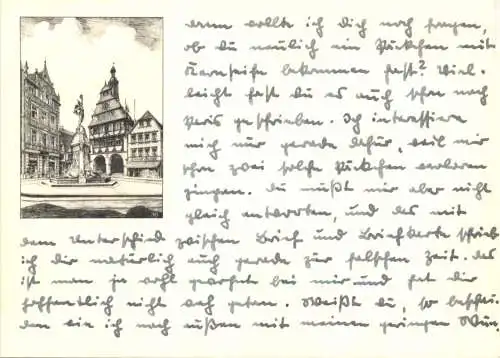 dann wollte ich Dich noch fragen,
ob du neulich ein Päckchen mit
Kernseife bekommen hast? Viel-
leicht hast du es auch schon nach
Paris geschrieben. Ich interessiere
mich nur gerade dafür, weil mir
schon zwei solche Päckchen verloren
gingen. Du mußt mir aber nicht
gleich antworten, und das mit
dem Unterschied zwischen Brief und Briefkarte schrieb
ich dir natürlich auch gerade zur falschen Zeit. Das
ist man ja wohl gewohnt bei mir und hat dir
hoffentlich nicht weh getan. Weißt du, so beschei-
den wie ich nach außen mit meinen geringen Wün-